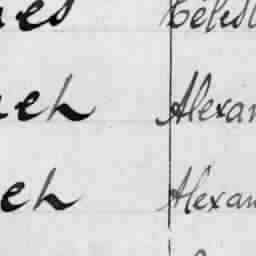 es Célest
eh Alexan
eh Alexan